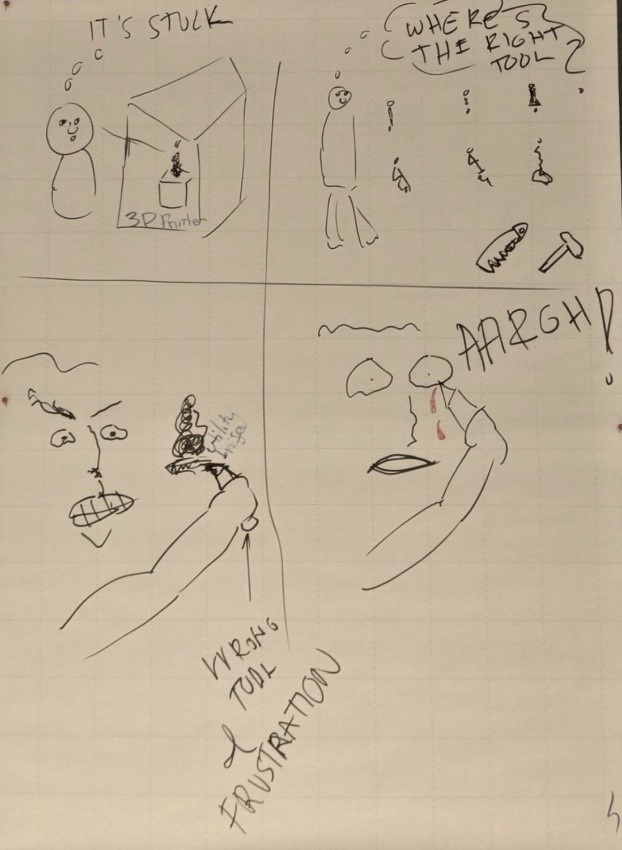 IT'S STUCK
3D Printer
WHERE'S
THE RIGHT
TOOL
utility
knife
WRONG
TOOL
&
FRUSTRATION
AARGH!